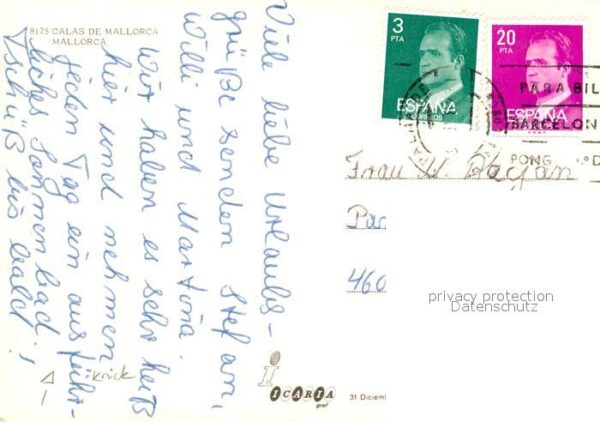 8175 CALAS DE MALLORCA
MALLORCA
Viele liebe Urlaubs-
grüße senden Stefan,
Willi und Martina.
Wir haben es sehr heiß
hier und nehmen
jeden Tag ein ausführ-
liches Sonnenbad.
Tschüß bis bald!
3
PTA
ESPAÑA
CORREOS
20
PTA
ESPAÑA
PARA BIL
BARCELON
PONG
Frau W.
Par
460
privacy protection
Datenschutz
i
ICARIA
graf
31 Diciem